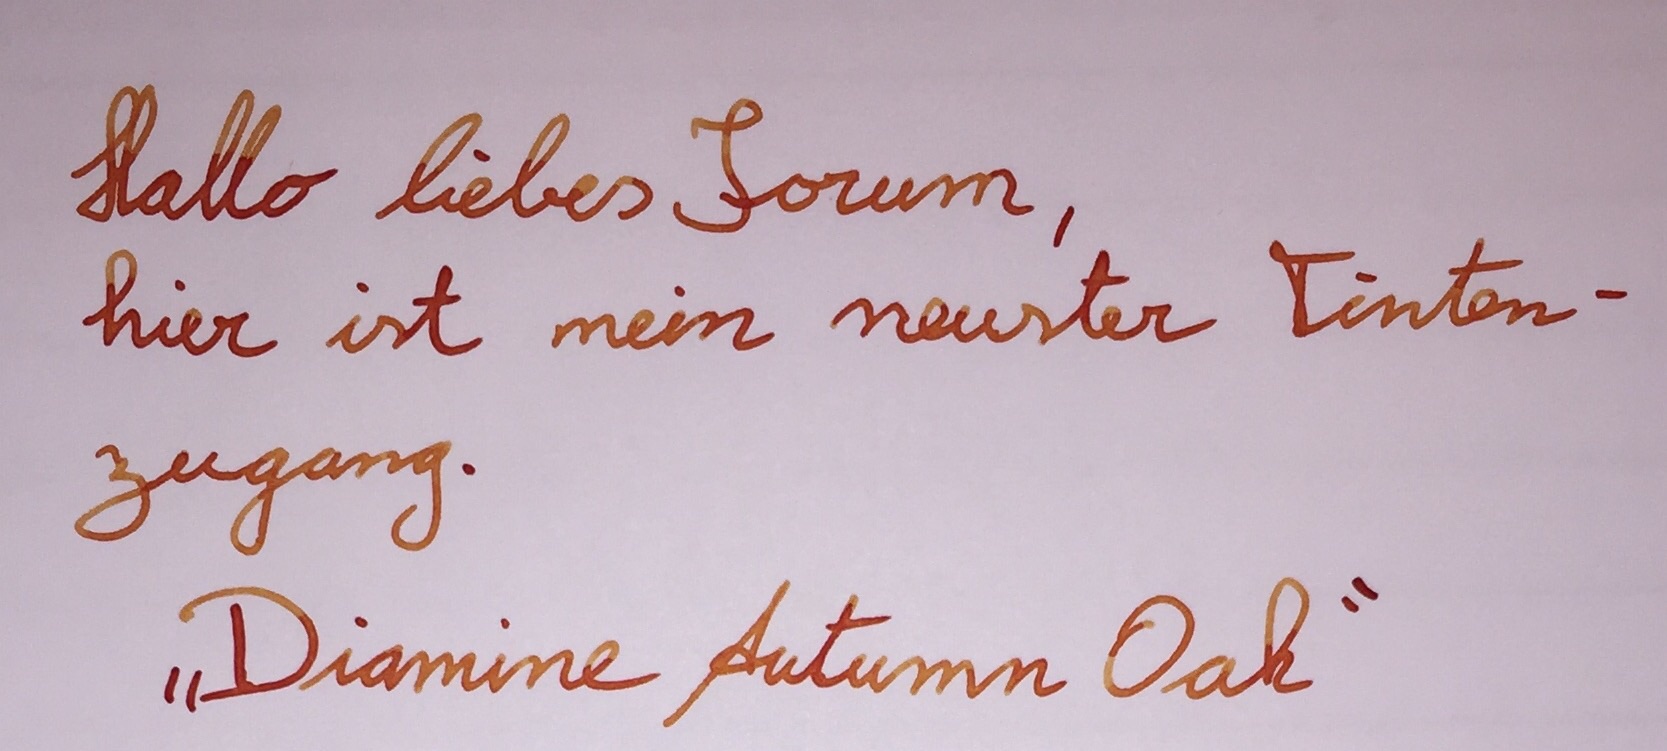 Hallo liebes Forum,
hier ist mein neuster Tinten-
zugang.
„Diamine Autumn Oak“